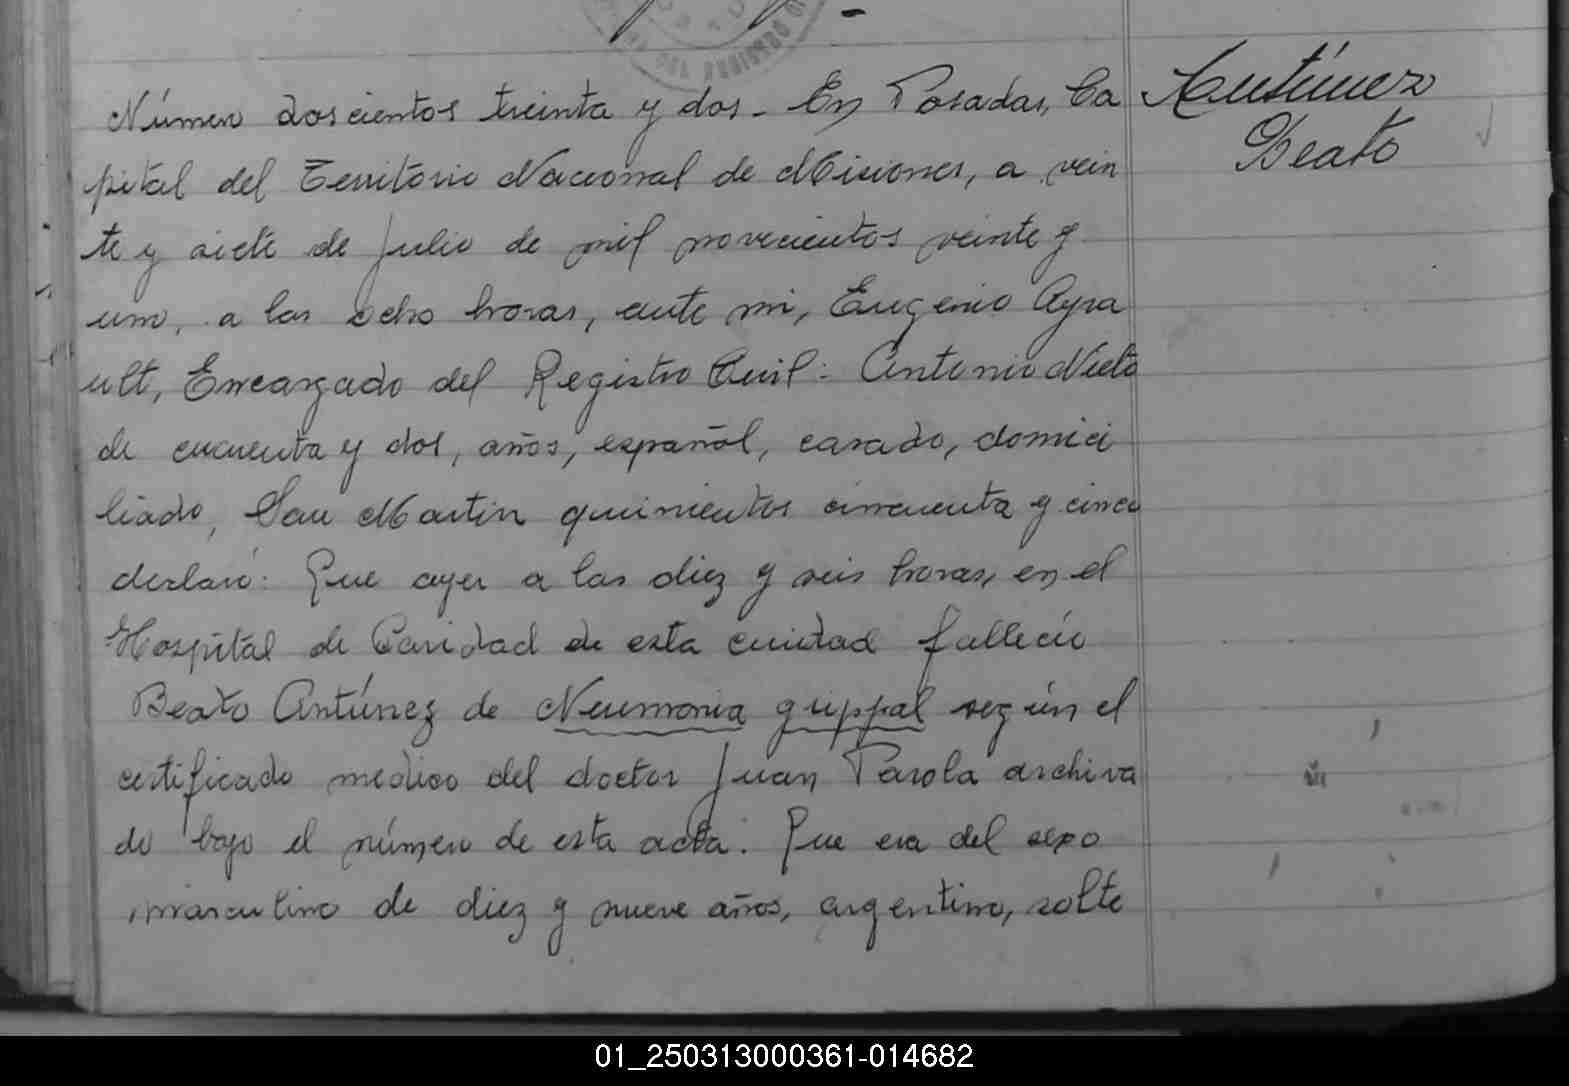 Número doscientos treinta y dos - En Posadas, Ca
Antúnez
Beato
pital del Territorio Nacional de Misiones, a vein
te y siete de Julio de mil novecientos veinte y
uno, a las ocho horas, ante mi, Eugenio Ayra
ult, Encargado del Registro Civil: Antonio Nieto
de cincuenta y dos, años, español, casado, domici
liado, San Martin quinientos cincuenta y cinco
declaró: Que ayer a las diez y seis horas, en el
Hospital de Caridad de esta ciudad falleció
Beato Antúnez de Neumonia grippal según el
certificado medico del doctor Juan Parola archiva
do bajo el número de esta acta. Que era del sexo
masculino de diez y nueve años, argentino, solte
01_250313000361-014682